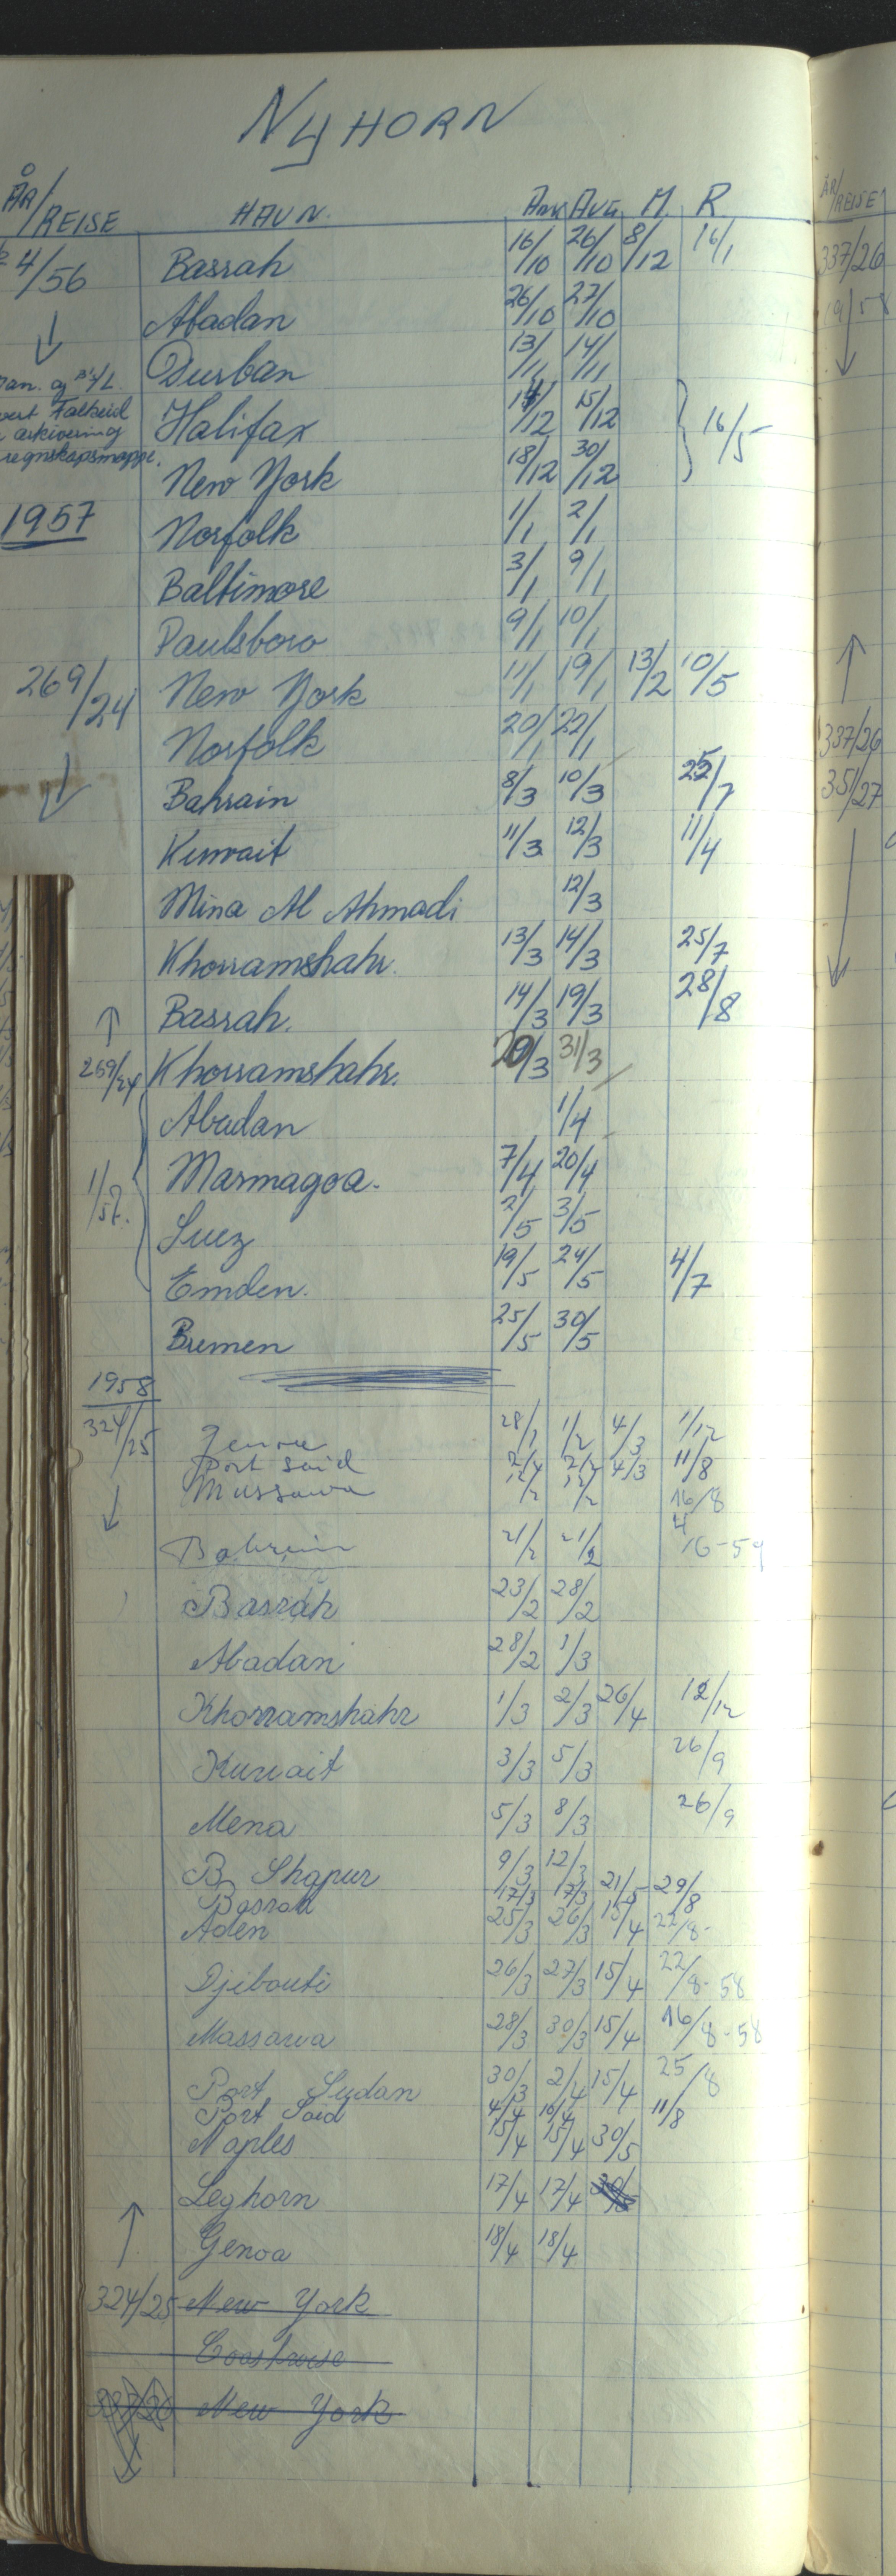 NYHORN
ÅR/REISE HAVN. Ank AVG. M. R
4/56 Basrah 16/10 26/10 8/12 16/1
Abadan 26/10 27/10
Durban 13/11 14/11
og B/L Halifax 14/12 15/12 } 16/5
Falkeid
arkivering
regnskapsmappe. New York 18/12 30/12
1957 Norfolk 1/1 2/1
Baltimore 3/1 9/1
Paulsboro 9/1 10/1
269/24 New York 11/1 19/1 13/2 10/5
Norfolk 20/1 22/1
Bahrain 8/3 10/3
Kuwait 11/3 12/3 11/4
Mina Al Ahmadi 12/3
Khorramshahr. 13/3 14/3 25/7
Basrah. 14/3 19/3 28/8
269/24 Khorramshahr. /3 31/3
Abadan 1/4
Marmagoa. 7/4 20/4
1/57. Suez 2/5 3/5
Emden. 19/5 24/5 4/7
Bremen 25/5 30/5
1958
324/25 Genoa 28/1 1/2 4/3 1/12
Port Said 4/3 11/8
Massawa 16/8
Bahrein 21/2 21/2 16-59
Basrah 23/2 28/2
Abadan 28/2 1/3
Khorramshahr 1/3 2/3 26/4 12/12
Kuwait 3/3 5/3 26/9
Mena 5/3 8/3 26/9
B Shapur 9/3 12/3 21/5 29/8
Basrah 17/3 17/3
Aden 25/3 26/3 15/4 22/8-
Djibouti 26/3 27/3 15/4 22/8-58
Massawa 28/3 30/3 15/4 16/8-58
Port Sudan 30/3 2/4 15/4 25/8
Port Said 4/4 10/4 11/8
Naples 15/4 15/4 30/5
Leghorn 17/4 17/4
Genoa 18/4 18/4
324/25 New York
Coastwise
New York
ÅR/REISE
337/26
19/58
337/26
351/27